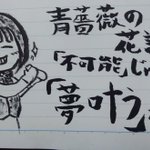 青薔薇の
花言
「不可能じゃ
「夢叶う